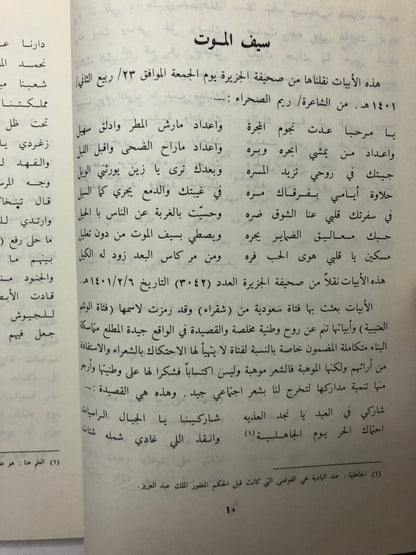 سيف الموت
هذه الأبيات نقلناها من صحيفة الجزيرة يوم الجمعة الموافق ٢٣/ ربيع الثاني/
١٤٠١هـ . من الشاعرة/ ريم الصحراء : ــ
يا مرحبا عدت نجوم المجرة واعداد مارش المطر وادلق سهيل
واعداد من يمشي ابحره وبره واعداد ماراح الضحى واقبل الليل
جيبتك في روحي تزيد المسره وبعدك ترى يا زين يورثني الويل
حلاوة أيامي بفرقاك مره في غيبتك والدمع يجري كما السيل
في سفرتك قلبي عنا الشوق ضره وحسيت بالغربة عن الناس با الحيل
حبك معاليق الضماير يجره ويصطي بسيف الموت من دون تعليل
مسكين يا قلبي هوى الحب فره ومن مركاس البعد زود له الكيل
هذه الأبيات نقلاً من صحيفة الجزيرة العدد (٣٠٤٢) التاريخ ١٤٠١/٢/٦هـ .
الأبيات بعثت بها فتاة سعودية من (شقراء) وقد رمزت لاسمها (فتاة الوشم
العتيبية) وأبياتها تنم عن روح وطنية مخلصة والقصيدة في الواقع جيدة المطلع متماسكة
البناء متكاملة المضمون خاصة بالنسبة لفتاة لا يتهيأ لها الاحتكاك بالشعراء والاستفادة
من أرائهم ولكنها الموهبة فالشعر موهبة وليس اكتساباً فشكرا لها على وطنيتها وأرجو
منها تنمية مداركها لتخرج لنا بشعر اجتماعي جيد . وهذه هي القصيدة : ــ
شاركي في العيد يا نجد العذيه شاركينا يا الجبال الراسيات
احتماك الحر يوم الجاهلية (١) وانقذ اللي غادي شمله شتات
(١) الجاهلية : عند البادية هي الفوضى التي كانت قبل الحكم المغفور الملك عبد العزيز .
١٠
دارنا
نحمد
شعبنا
مملكتنا
تحت ظل
زغردي يا
والفهد
وجه المرس
قال
وارتدي
ما حلى رفع (
بينهم
والجنود
قادت
للجيوش
جعل فيهم
(١) العلم هنا : هو